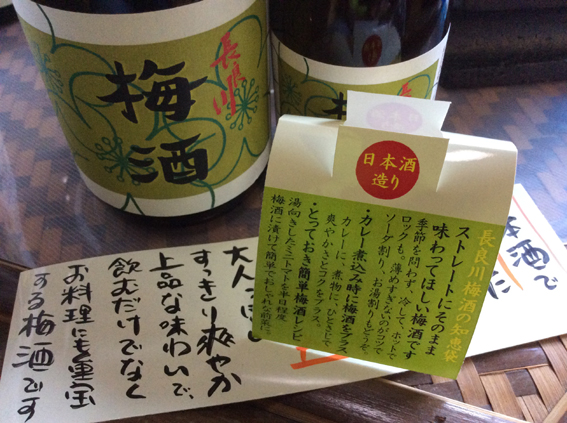 長良川
梅酒
長良川
梅酒
日本酒
造り
長良川梅酒の知恵袋
ストレートにそのまま
味わってほしい梅酒です
季節を問わず、冷して、ホットで
ロックも。薄めすぎないのがコツで
ソーダ割り、お湯割りもどうぞ。
・カレー煮込む時に梅酒をプラス
カレーに、煮物に、ひとさじで
爽やかさとコクをプラス。
・とっておき簡単梅酒レシピ
湯向きしたミニトマトを半日程度
梅酒に漬けて簡単でおしゃれな前菜に
本酒で
た
大人
すっきり爽やか
上品な味わいで、
飲むだけでなく
お料理にも重宝
する梅酒です